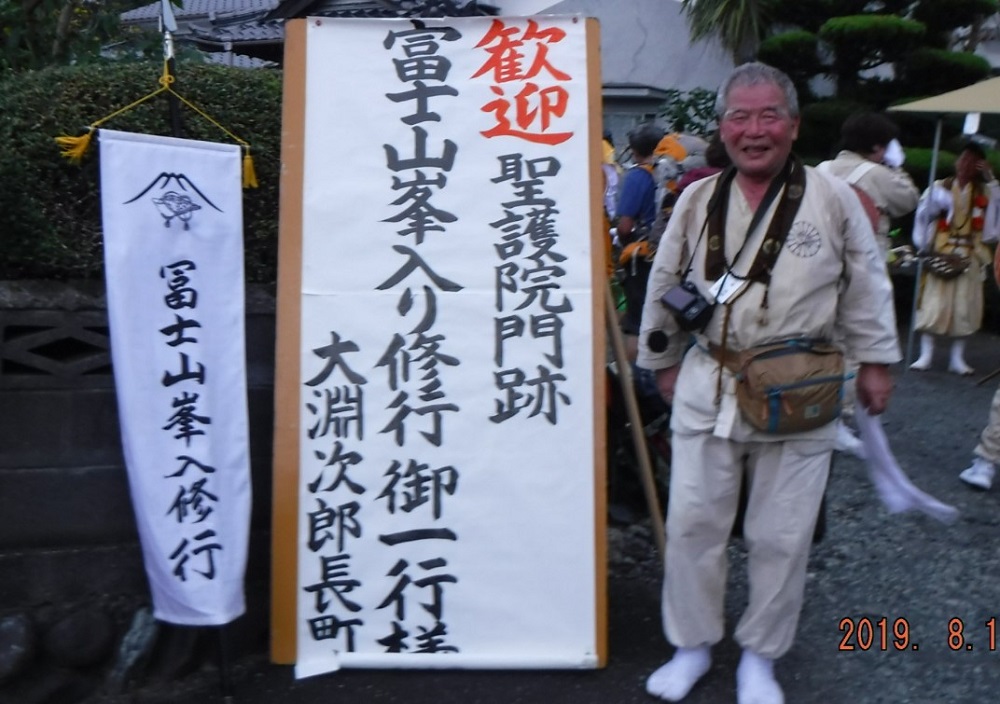 歓迎 聖護院門跡
富士山峯入り修行 御一行様
大淵次郎長町
冨士山峯入修行
2019. 8.1